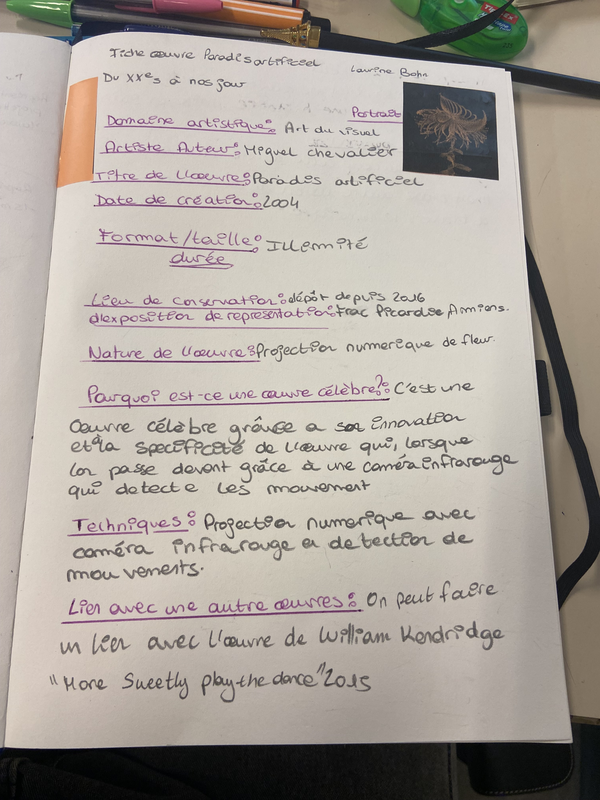 Fiche œuvre Paradis artificiel
Laurine Bohn
Du XXe s à nos jour
Portrait
Domaine artistique: Art du visuel
Artiste Auteur: Miguel chevalier
Titre de L'œuvre: Paradis artificiel
Date de création: 2004
Format/taille: Illemité
durée
Lieu de conservation: dépôt depuis 2016
d'exposition de représentation: Frac Picardie Amiens.
Nature de L'œuvre: Projection numerique de fleur.
Pourquoi est-ce une œuvre célèbre?: C'est une
Œuvre célèbre grâuce a son innovation
et à la specificité de L'œuvre qui, lorsque
l'on passe devant grâce à une caméra infrarouge
qui detecte les mouvement
Techniques: Projection numerique avec
caméra infrarouge a detection de
mouvements.
Lien avec une autre œuvres: On peut faire
un lien avec L'œuvre de William Kendridge
"More Sweetly play the dance" 2015